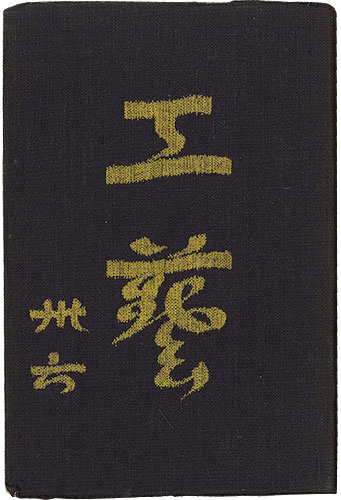 工藝
卅六